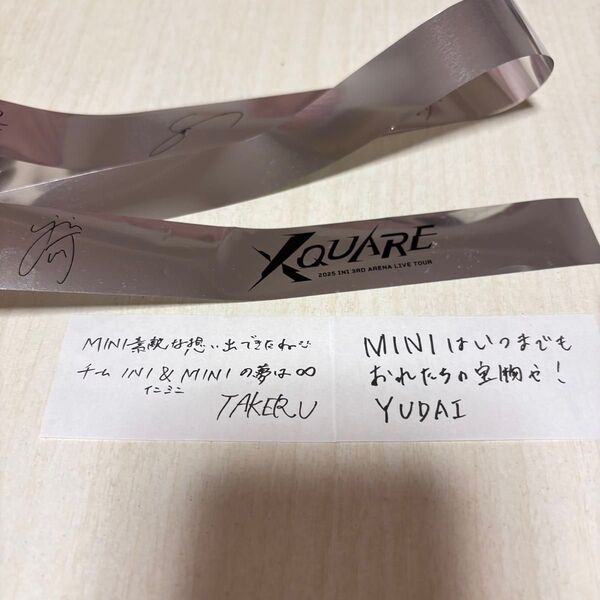 XQUARE
2025 INI 3RD ARENA LIVE TOUR
MINI素敵な想い出できたね
チーム INI & MINI の夢は∞
イニ ミニ
TAKERU
MINIはいつまでも
おれたちの宝物や!
YUDAI